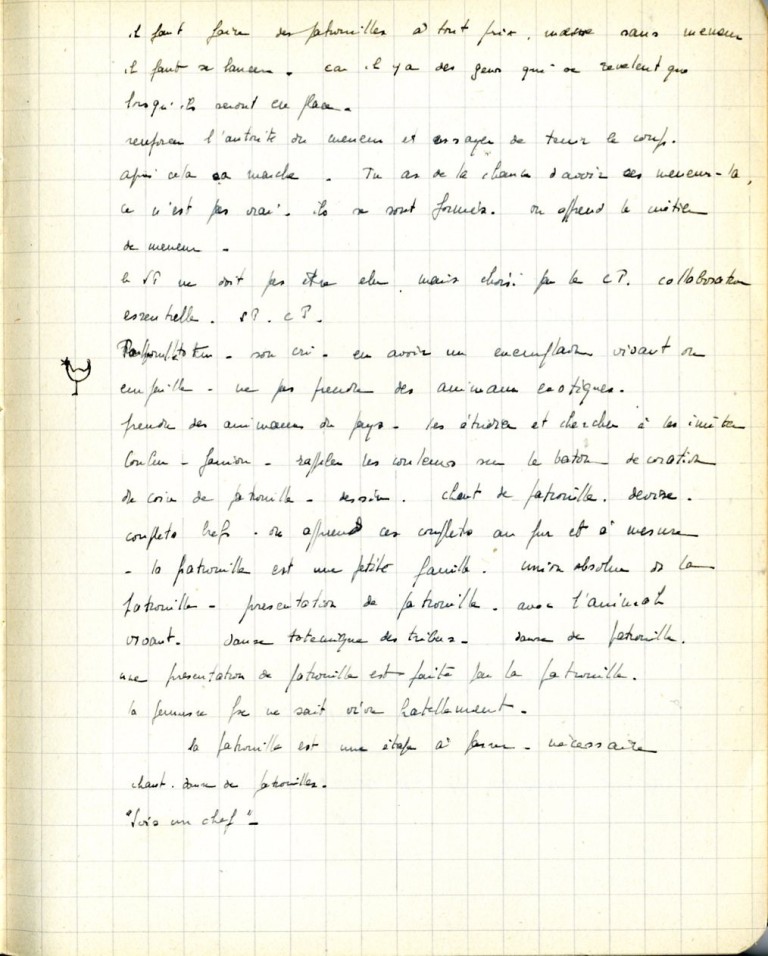 il faut faire des patrouilles à tout prix, même sans meneur
il faut se lancer. car il y a des gens qui se revelent que
lorsqu'ils seront en place.
renforcer l'autorité du meneur et essayer de tenir le coup.
après cela ça marche. Tu as de la chance d'avoir ces meneurs-là,
ce n'est pas vrai. ils se sont formés. on apprend le métier
de meneur -
le SP ne doit pas être elu, mais choisi par le CP. collaboration
essentielle. SP. CP.
son cri - en avoir un exemplaire vivant ou
empaillé - ne pas prendre des animaux exotiques.
prendre des animaux du pays - les étudier et chercher à les imiter
Couleur - fanion - rappeler les couleurs sur le baton decoration
du coin de patrouille - dessin. chant de patrouille. devise.
couplets brefs. on apprend ces couplets au fur et à mesure
- la patrouille est une petite famille. union absolue de la
patrouille - presentation de patrouille. avec l'animal
vivant. danse totemique des tribus - danse de patrouille.
une presentation de patrouille est faite par la patrouille.
la jeunesse ne sait vivre
la patrouille est une étape à - nécessaire
chant. danse de patrouilles.
"Sois un chef" -